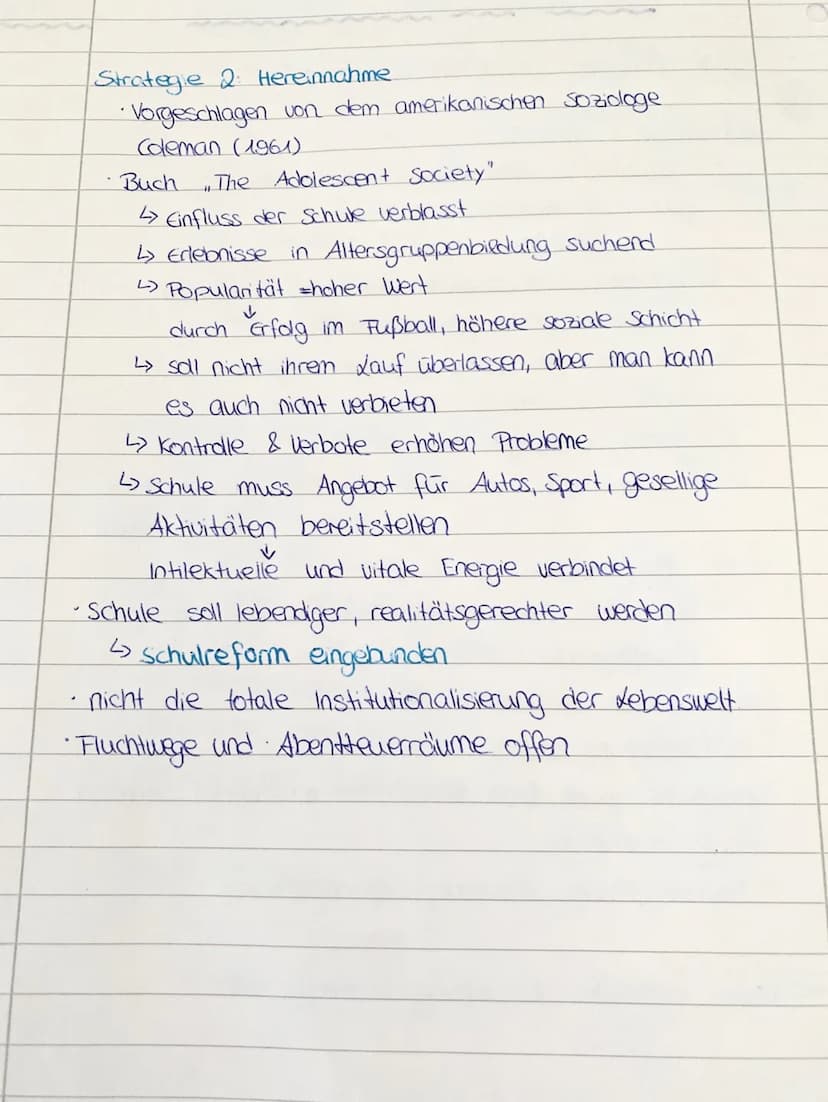 Strategie 2: Hereinnahme
· Vorgeschlagen von dem amerikanischen Soziologe
Coleman (1961)
· Buch „The Adolescent Society"
↳ Einfluss der Schule verblasst
↳ Erlebnisse in Altersgruppenbildung suchend
↳ Popularität =hoher Wert
↓
durch Erfolg im Fußball, höhere soziale Schicht
↳ soll nicht ihrem Lauf überlassen, aber man kann
es auch nicht verbieten
↳ Kontrolle & Verbote erhöhen Probleme
↳ Schule muss Angebot für Autos, Sport, gesellige
Aktivitäten bereitstellen
↓
Intilektuelle und vitale Energie verbindet
· Schule soll lebendger, realitätsgerechter werden
↳ Schulreform eingebunden
· nicht die totale Institutionalisierung der Lebenswelt
· Fluchtwege und · Abentteuerräume offen